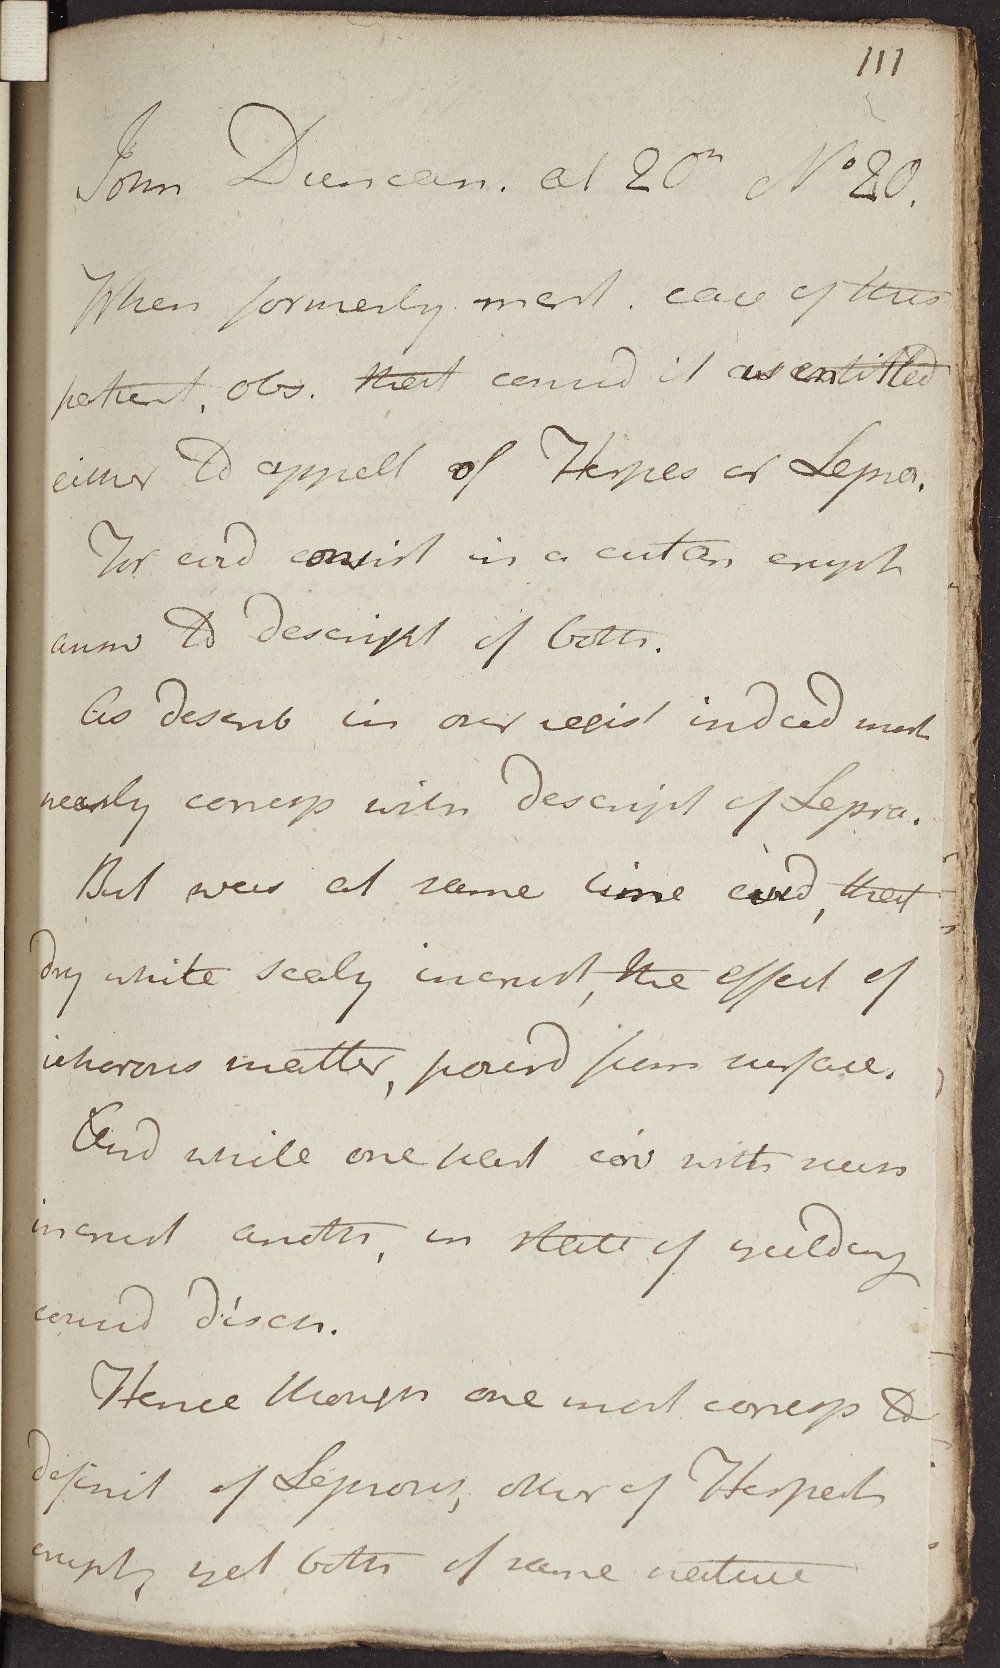 111
John Duncan. æt 20n No 20.
When formerly ment. case of this
patient, obs. that consid it as entitled
either to appell of Herpes or Lepra.
For evid consist in a cutan erupt
answ to descript of both.
As describ in our regist indeed most
nearly corresp with descript of Lepra.
But was at same time evid, that
dry white scaly incrust, the effect of
ichorous matter, pourd from surface.
And while one part cov with such
incrust another, in state of yielding
consid disch.
Hence though one most corresp to
definit of Leprous, other of Herpetic
erupt, yet both of same nature